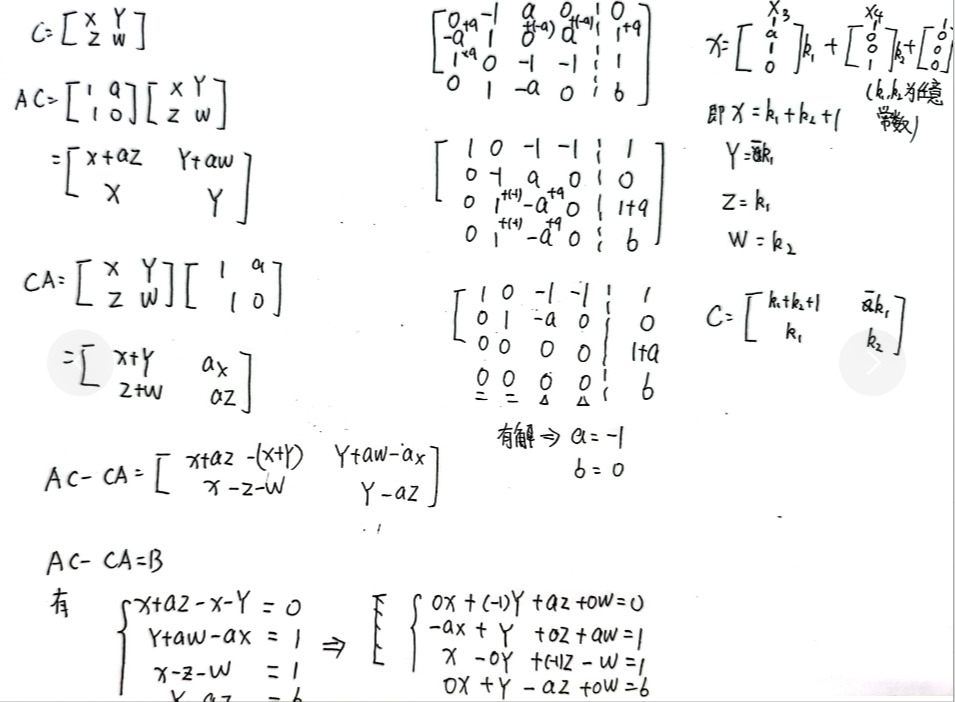 C=[x Y
Z W]
AC=[1 a
1 0][x Y
Z W]
=[x+az Y+aw
X Y]
CA=[x Y
Z W][1 a
1 0]
=[x+Y ax
z+w az]
AC-CA=[x+az-(x+Y) Y+aw-ax
x-z-w Y-az]
AC-CA=B
有
x+az-x-Y=0
Y+aw-ax=1
x-z-w=1
Y-az=b
⇒
0x+(-1)Y+az+0w=0
-ax+Y+0z+aw=1
x-0Y+(-1)z-w=1
0x+Y-az+0w=b
[0+a -1 a 0 ¦ 0
-a 1 0 a ¦ 1+a
1×a 0 -1 -1 ¦ 1
0 1 -a 0 ¦ b]
[1 0 -1 -1 ¦ 1
0 -1 a 0 ¦ 0
0 1+(-1) -a+a 0 ¦ 1+a
0 1+(+1) -a+a 0 ¦ b]
[1 0 -1 -1 ¦ 1
0 1 -a 0 ¦ 0
0 0 0 0 ¦ 1+a
0 0 0 0 ¦ b]
有解⇒a=-1
b=0
X3 X4
x=[1
a
1
0]k1+[1
0
0
1]k2+[1
0
0
0]
(k1,k2为任意
常数)
即X=k1+k2+1
Y=ak1
Z=k1
W=k2
C=[k1+k2+1 ak1
k1 k2]